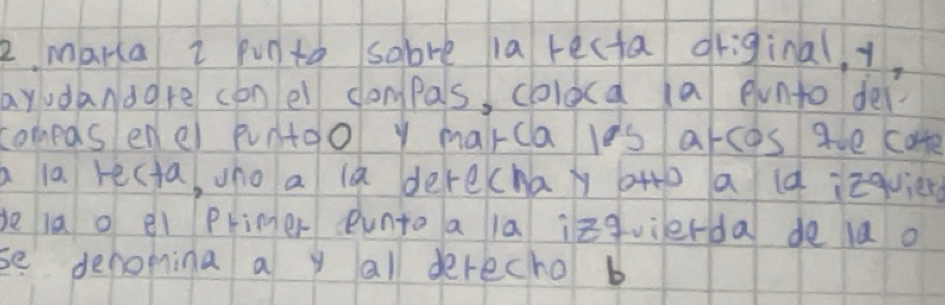 2. Marca 1 punto sobre la recta original, y,
ayudandore con el compas, coloca la punto del
compas en el punto O y marca los arcos que corte
a la recta, uno a la derecha y otro a la izquier
de la o el primer punto a la izquierda de la o
se denomina a y al derecho b